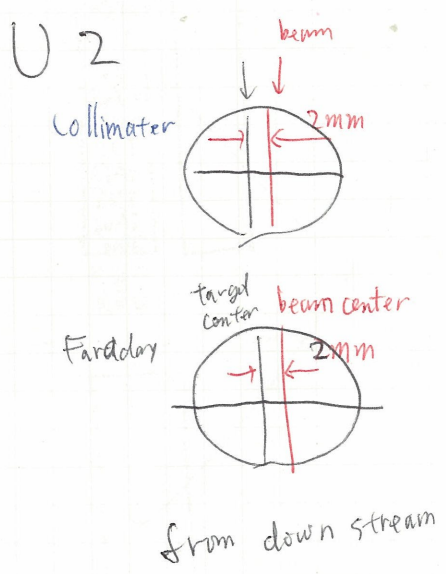 U2
beam
Collimater
2mm
target
center
beam center
Faraday
2mm
from down stream